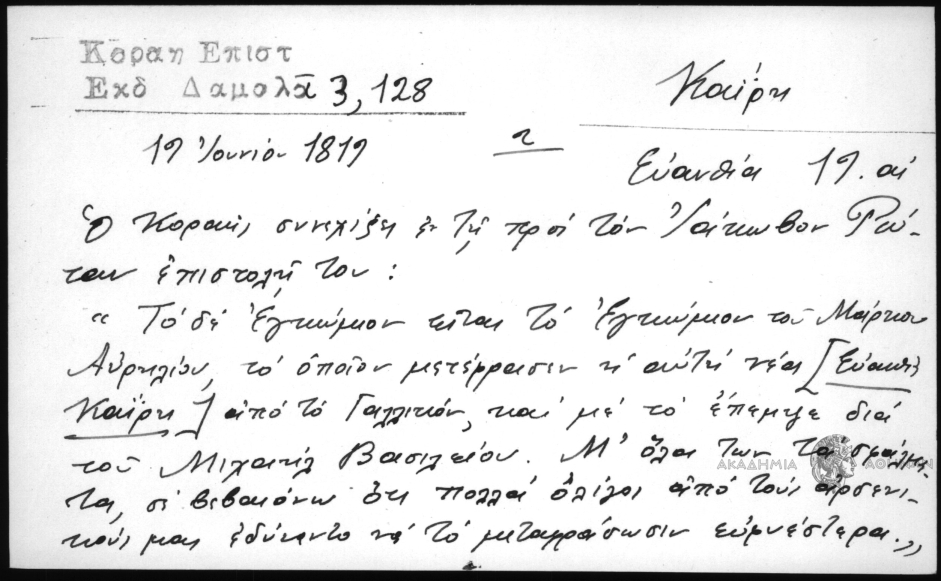 Κοραη Επιστ
Εκδ Δαμαλᾶ 3, 128
Καΐρη
19 Ἰουνίου 1819
2
Εὐανθία 19. αἰ
Ὁ Κοραῆς συνεχίζει ἐν τῇ πρὸς τὸν Ἰάκωβον Ρώ-
ταν ἐπιστολῇ του:
“ Τὸ δὲ Ἐγκώμιον εἶναι τὸ Ἐγκώμιον τοῦ Μάρκου
Αὐρηλίου, τὸ ὁποῖον μετέφρασεν ἡ αὐτὴ νέα [Εὐανθία
Καΐρη] ἀπὸ τὸ Γαλλικόν, καὶ μὲ τὸ ἔπεμψε διὰ
τοῦ Μιχαὴλ Βασιλείου. Μ' ὅλα των τὰ σφάλμα-
τα, σὲ βεβαιόνω ὅτι πολλὰ ὀλίγοι ἀπὸ τοὺς ἀρσενι-
κούς μας ἐδύναντο νὰ τὸ μεταφράσωσιν εὐφυέστερα.„
ΑΚΑΔΗΜΙΑ ΑΘΗΝΩΝ